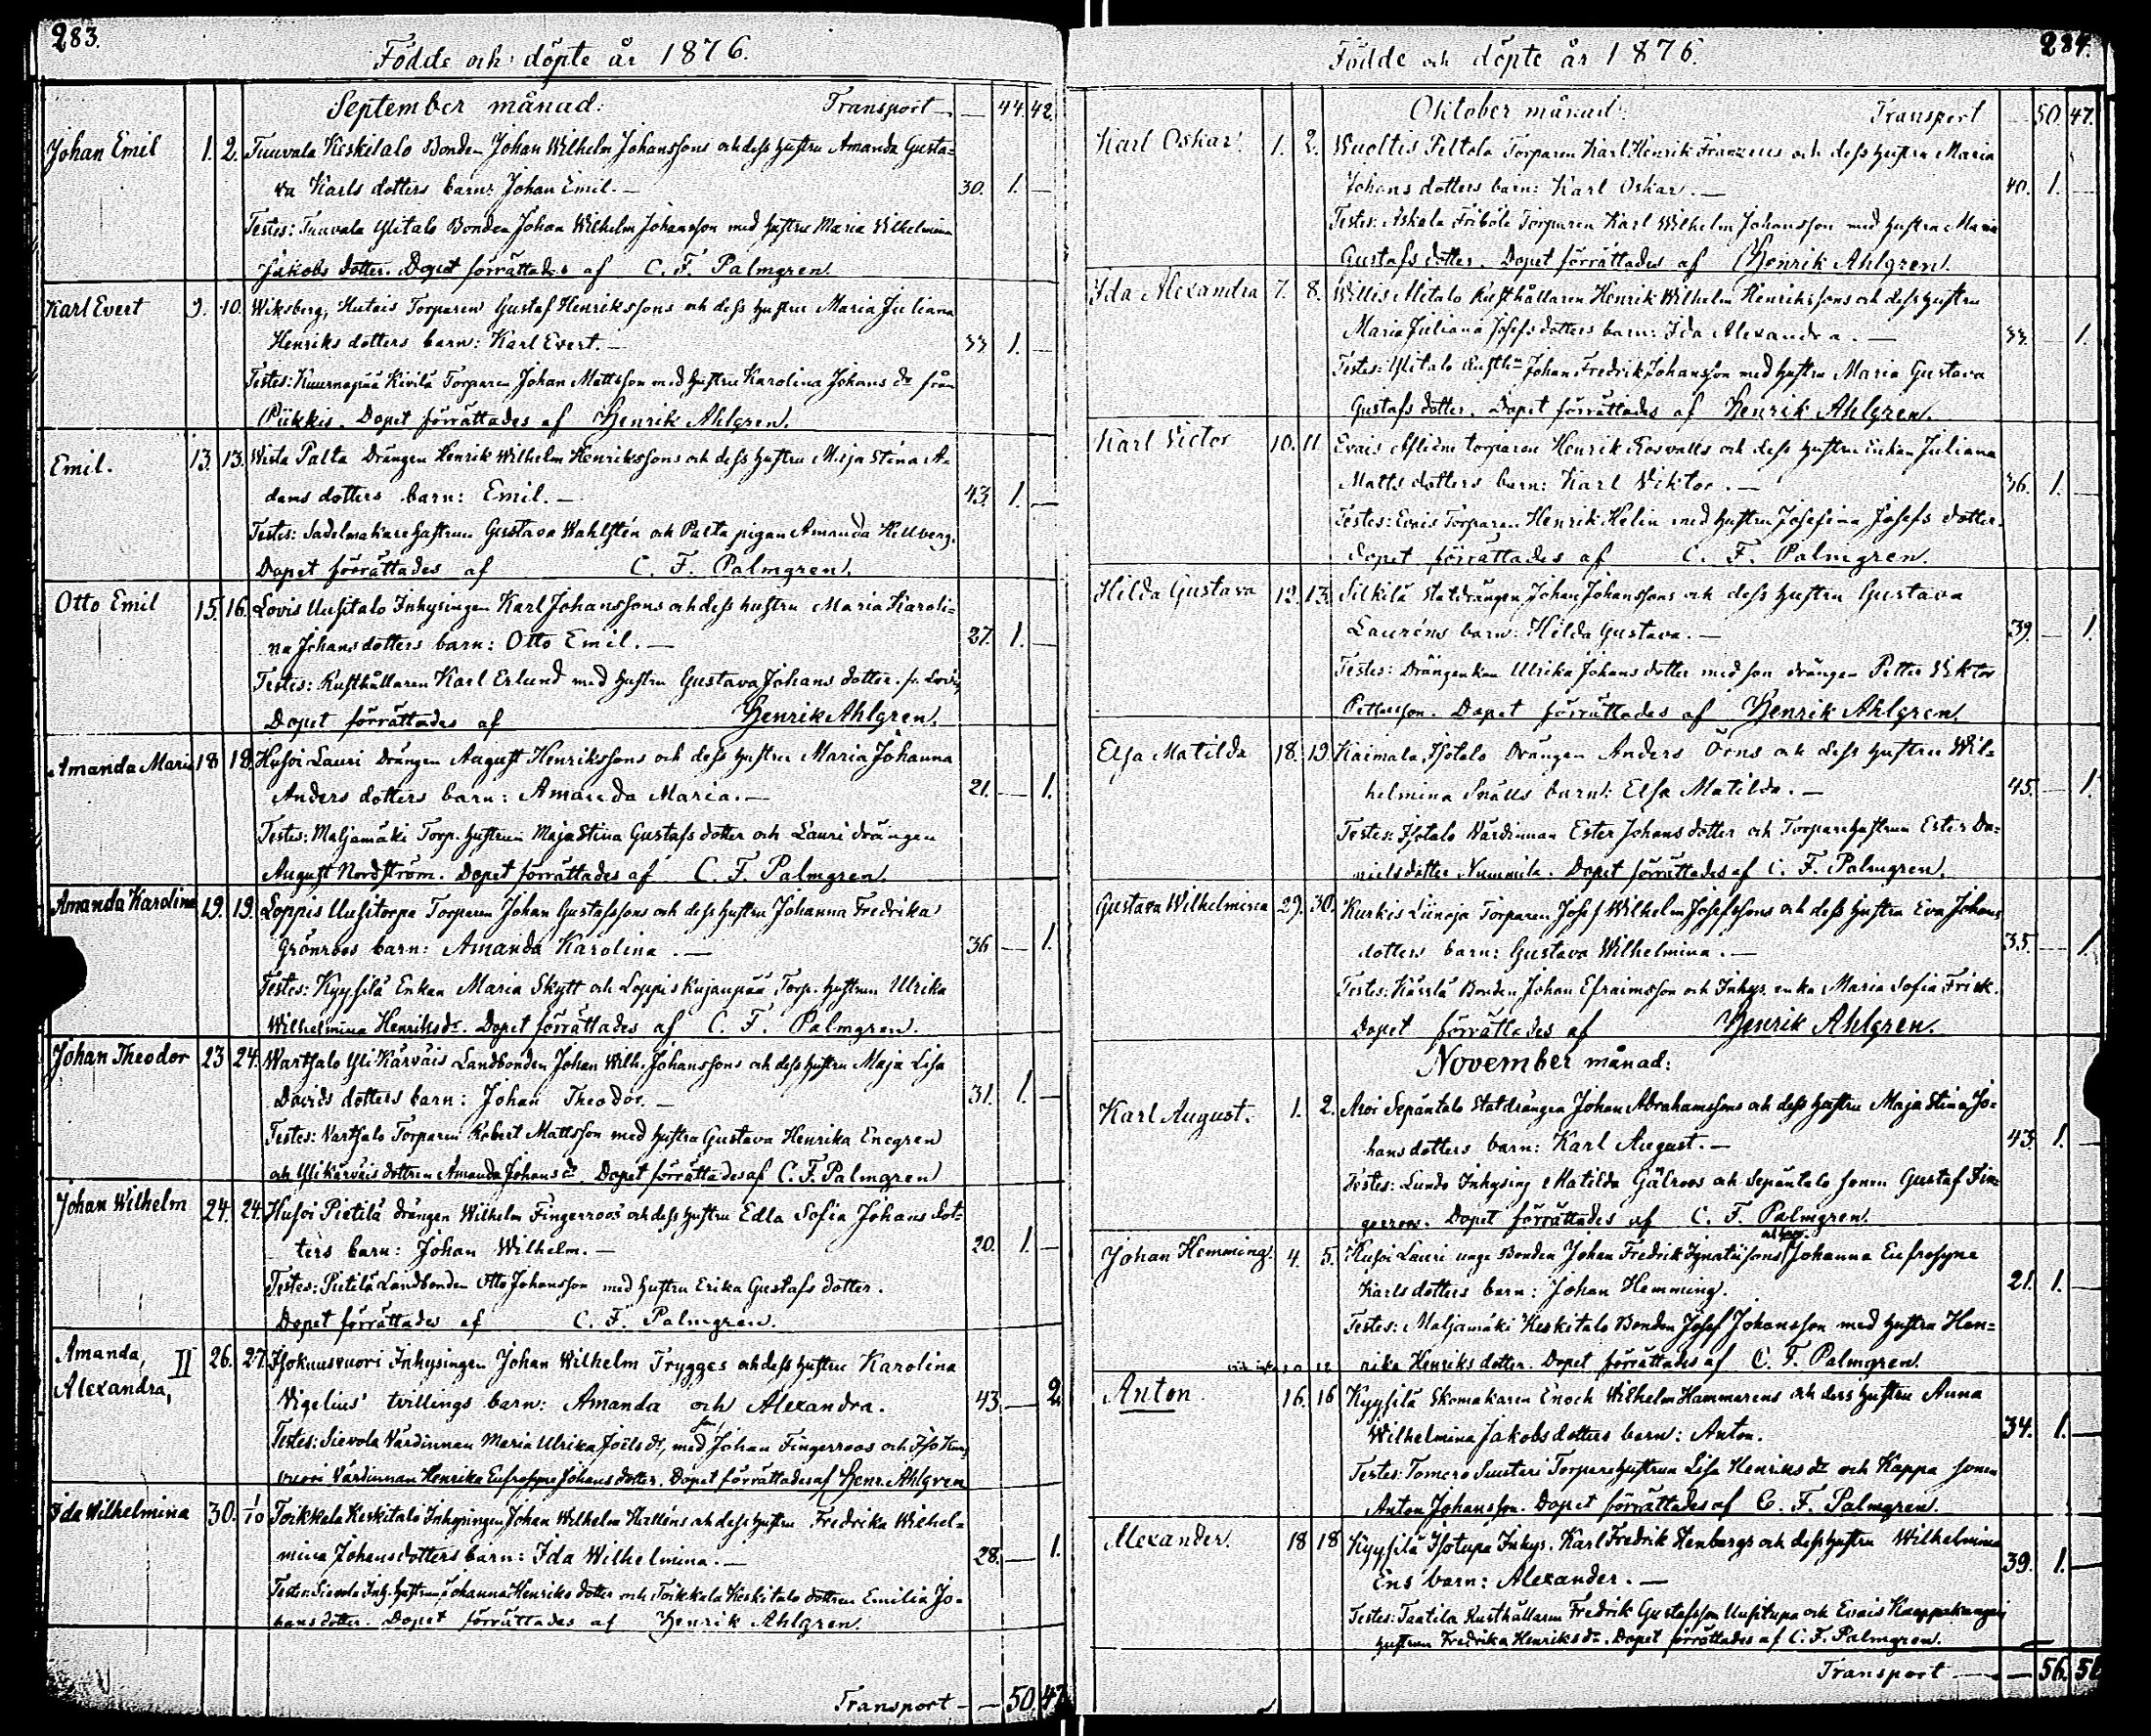 283.
Födde och döpte år 1876.
September månad: Transport — — 44. 42.
Johan Emil 1. 2. Tuuvala Keskitalo Bonden Johan Wilhelm Johanssons och dess hustru Amanda Gusta=
va Karls dotters barn: Johan Emil. — 30. 1. —
Testes: Tuuvala Ylitalo Bonden Johan Wilhelm Johansson med hustru Maria Wilhelmina
Jakobs dotter. Dopet förrättades af C. F. Palmgren.
Karl Evert 9. 10. Wiksberg, Hutais Torparen Gustaf Henrikssons och dess hustru Maria Juliana
Henriks dotters barn: Karl Evert. — 33 1. —
Testes: Kuurnapää Kivilä Torparen Johan Mattsson med hustru Karolina Johans dr från
Piikkis. Dopet förrättades af Henrik Ahlgren.
Emil. 13. 13. Wista Palta Drängen Henrik Wilhelm Henrikssons och dess hustru Maja Stina A=
dams dotters barn: Emil. — 43. 1. —
Testes: Sadelmakarehustrun Gustava Wahlstén och Palta pigan Amanda Hellberg.
Dopet förrättades af C. F. Palmgren.
Otto Emil 15. 16. Lovis Uusitalo Inhysingen Karl Johanssons och dess hustru Maria Karoli=
na Johansdotters barn: Otto Emil. — 27. 1. —
Testes: Rusthållaren Karl Erlund med hustru Gustava Johans dotter. fr. Lovis
Dopet förrättades af Henrik Ahlgren.
Amanda Maria 18 18. Husoi Lauri Drängen August Henrikssons och dess hustru Maria Johanna
Anders dotters barn: Amanda Maria. — 21. — 1.
Testes: Maljamäki Torp. hustrun Maja Stina Gustafs dotter och Lauri drängen
August Nordström. Dopet förrättades af C. F. Palmgren.
Amanda Karolina 19. 19. Loppis Uusitorpa Torparen Johan Gustafssons och dess hustru Johanna Fredrika
Grönroos barn: Amanda Karolina. — 36 — 1.
Testes: Kyysilä Enkan Maria Skytt och Loppis Kajanpää Torp. hustrun Ulrika
Wilhelmina Henriksdr. Dopet förrättades af C. F. Palmgren.
Johan Theodor 23 24. Wartsalo Yli Kärväis Landbonden Johan Wilh. Johanssons och dess hustru Maja Lisa
Davids dotters barn: Johan Theodor. — 31. 1. —
Testes: Vartsalo Torparen Robert Mattsson med hustru Gustava Henrika Enegren
och Ylikärväis dottren Amanda Johans dr. Dopet förrättades af C. F. Palmgren
Johan Wilhelm 24. 24. Husoi Pietilä drängen Wilhelm Fingerroos' och dess hustru Edla Sofia Johans dot=
ters barn: Johan Wilhelm. — 20. 1. —
Testes: Pietilä Landbonden Otto Johansson med hustru Erika Gustafs dotter.
Dopet förrättades af C. F. Palmgren.
Amanda, II 26. 27. Isokuusvuori Inhysingen Johan Wilhelm Trygges och dess hustru Karolina
Alexandra, Vigelius' tvillings barn: Amanda och Alexandra. 43 — 2.
Testes: Sievola Värdinnan Maria Ulrika Joëls dr, med son Johan Fingerroos och Isokuus
vuori Värdinnan Henrika Eufrosyne Johans dotter. Dopet förrättades af Henr. Ahlgren
Ida Wilhelmina 30. 1/10 Toikkala Keskitalo Inhysingen Johan Wilhelm Halléns och dess hustru Fredrika Wilhel=
mina Johansdotters barn: Ida Wilhelmina. — 28. — 1.
Testes: Sievola Inh. hustrun Johanna Henriks dotter och Toikkala Keskitalo dottren Emilia Jo=
hans dotter. Dopet förrättades af Henrik Ahlgren.
Transport — — 50. 47.
284.
Födde och döpte år 1876.
Oktober månad: Transport — 50. 47.
Karl Oskar. 1. 2. Wuoltis Peltola Torparen Karl Henrik Franzens och dess hustru Maria
Johans dotters barn: Karl Oskar. — 40. 1. —
Testes: Askala Friböle Torparen Karl Wilhelm Johansson med hustru Maria
Gustafs dotter. Dopet förrättades af Henrik Ahlgren.
Ida Alexandra 7. 8. Willis Alitalo Rusthållaren Henrik Wilhelm Henrikssons och dess hustru
Maria Juliana Josefs dotters barn: Ida Alexandra. — 33. — 1.
Testes: Ylitalo Rusthn Johan Fredrik Johansson med hustru Maria Gustava
Gustafs dotter. Dopet förrättades af Henrik Ahlgren.
Karl Victor 10. 11. Evais torparen Henrik Rosvalls och dess hustru Juliana
Matts dotters barn: Karl Viktor. — 36. 1. —
Testes: Evais Torparen Henrik Helin med hustru Josefina Josefs dotter.
Dopet förrättades af C. F. Palmgren.
Hilda Gustava 12. 13. Silkilä Statdrängen Johan Johanssons och dess hustru Gustava
Lauréns barn: Hilda Gustava. — 39. — 1.
Testes: Drängenkan Ulrika Johans dotter med son drängen Petter Viktor
Pettersson. Dopet förrättades af Henrik Ahlgren.
Elsa Matilda 18. 19. Kaimala, Isotalo Drängen Anders Örns och dess hustru Wil=
helmina Snälls barn: Elsa Matilda. — 45. — 1.
Testes: Isotalo Värdinnan Ester Johans dotter och Torparehustrun Ester Da=
nielsdotter Nummila. Dopet förrättades af C. F. Palmgren.
Gustava Wilhelmina 29. 30. Kurkis Liinoja Torparen Josef Wilhelm Josefssons och dess hustru Eva Johans
dotters barn: Gustava Wilhelmina. — 35. — 1.
Testes: Kärrlä Bonden Johan Efraimsson och Inhys. enka Maria Sofia Frisk.
Dopet förrättades af Henrik Ahlgren.
November månad:
Karl August. 1. 2. Aroi Sepäntalo Statdrängen Johan Abrahamssons och dess hustru Maja Stina Jo=
hans dotters barn: Karl August. — 43. 1. —
Testes: Lundo Inhysing Matilda Gälroos och Sepäntalo sonen Gustaf Fin=
geroos. Dopet förrättades af C. F. Palmgren.
Johan Hemming. 4. 5. Husoi Lauri unge Bonden Johan Fredrik Ignatiisons Johanna Eufrosyne
Karls dotters barn: Johan Hemming. 21. 1. —
Testes: Maljamäki Keskitalo Bonden Josef Johansson med hustru Hen=
rika Henriks dotter. Dopet förrättades af C. F. Palmgren.
Anton 16. 16 Kyysilä Skomakaren Enoch Wilhelm Hammarens och dess hustru Anna
Wilhelmina Jakobs dotters barn: Anton. 34. 1. —
Testes: Tomero Suutari Torparehustrun Lisa Henriks dr och Kappa sonen
Anton Johansson. Dopet förrättades af C. F. Palmgren.
Alexander. 18 18 Kyysilä Isotupa Inhys. Karl Fredrik Stenbergs och dess hustru Wilhelmina
Ens barn: Alexander. — 39. 1. —
Testes: Taatila Rusthållaren Fredrik Gustafsson Uusitupa och Evais
hustrun Fredrika Henriks dr. Dopet förrättades af C. F. Palmgren.
Transport — — 56. 51